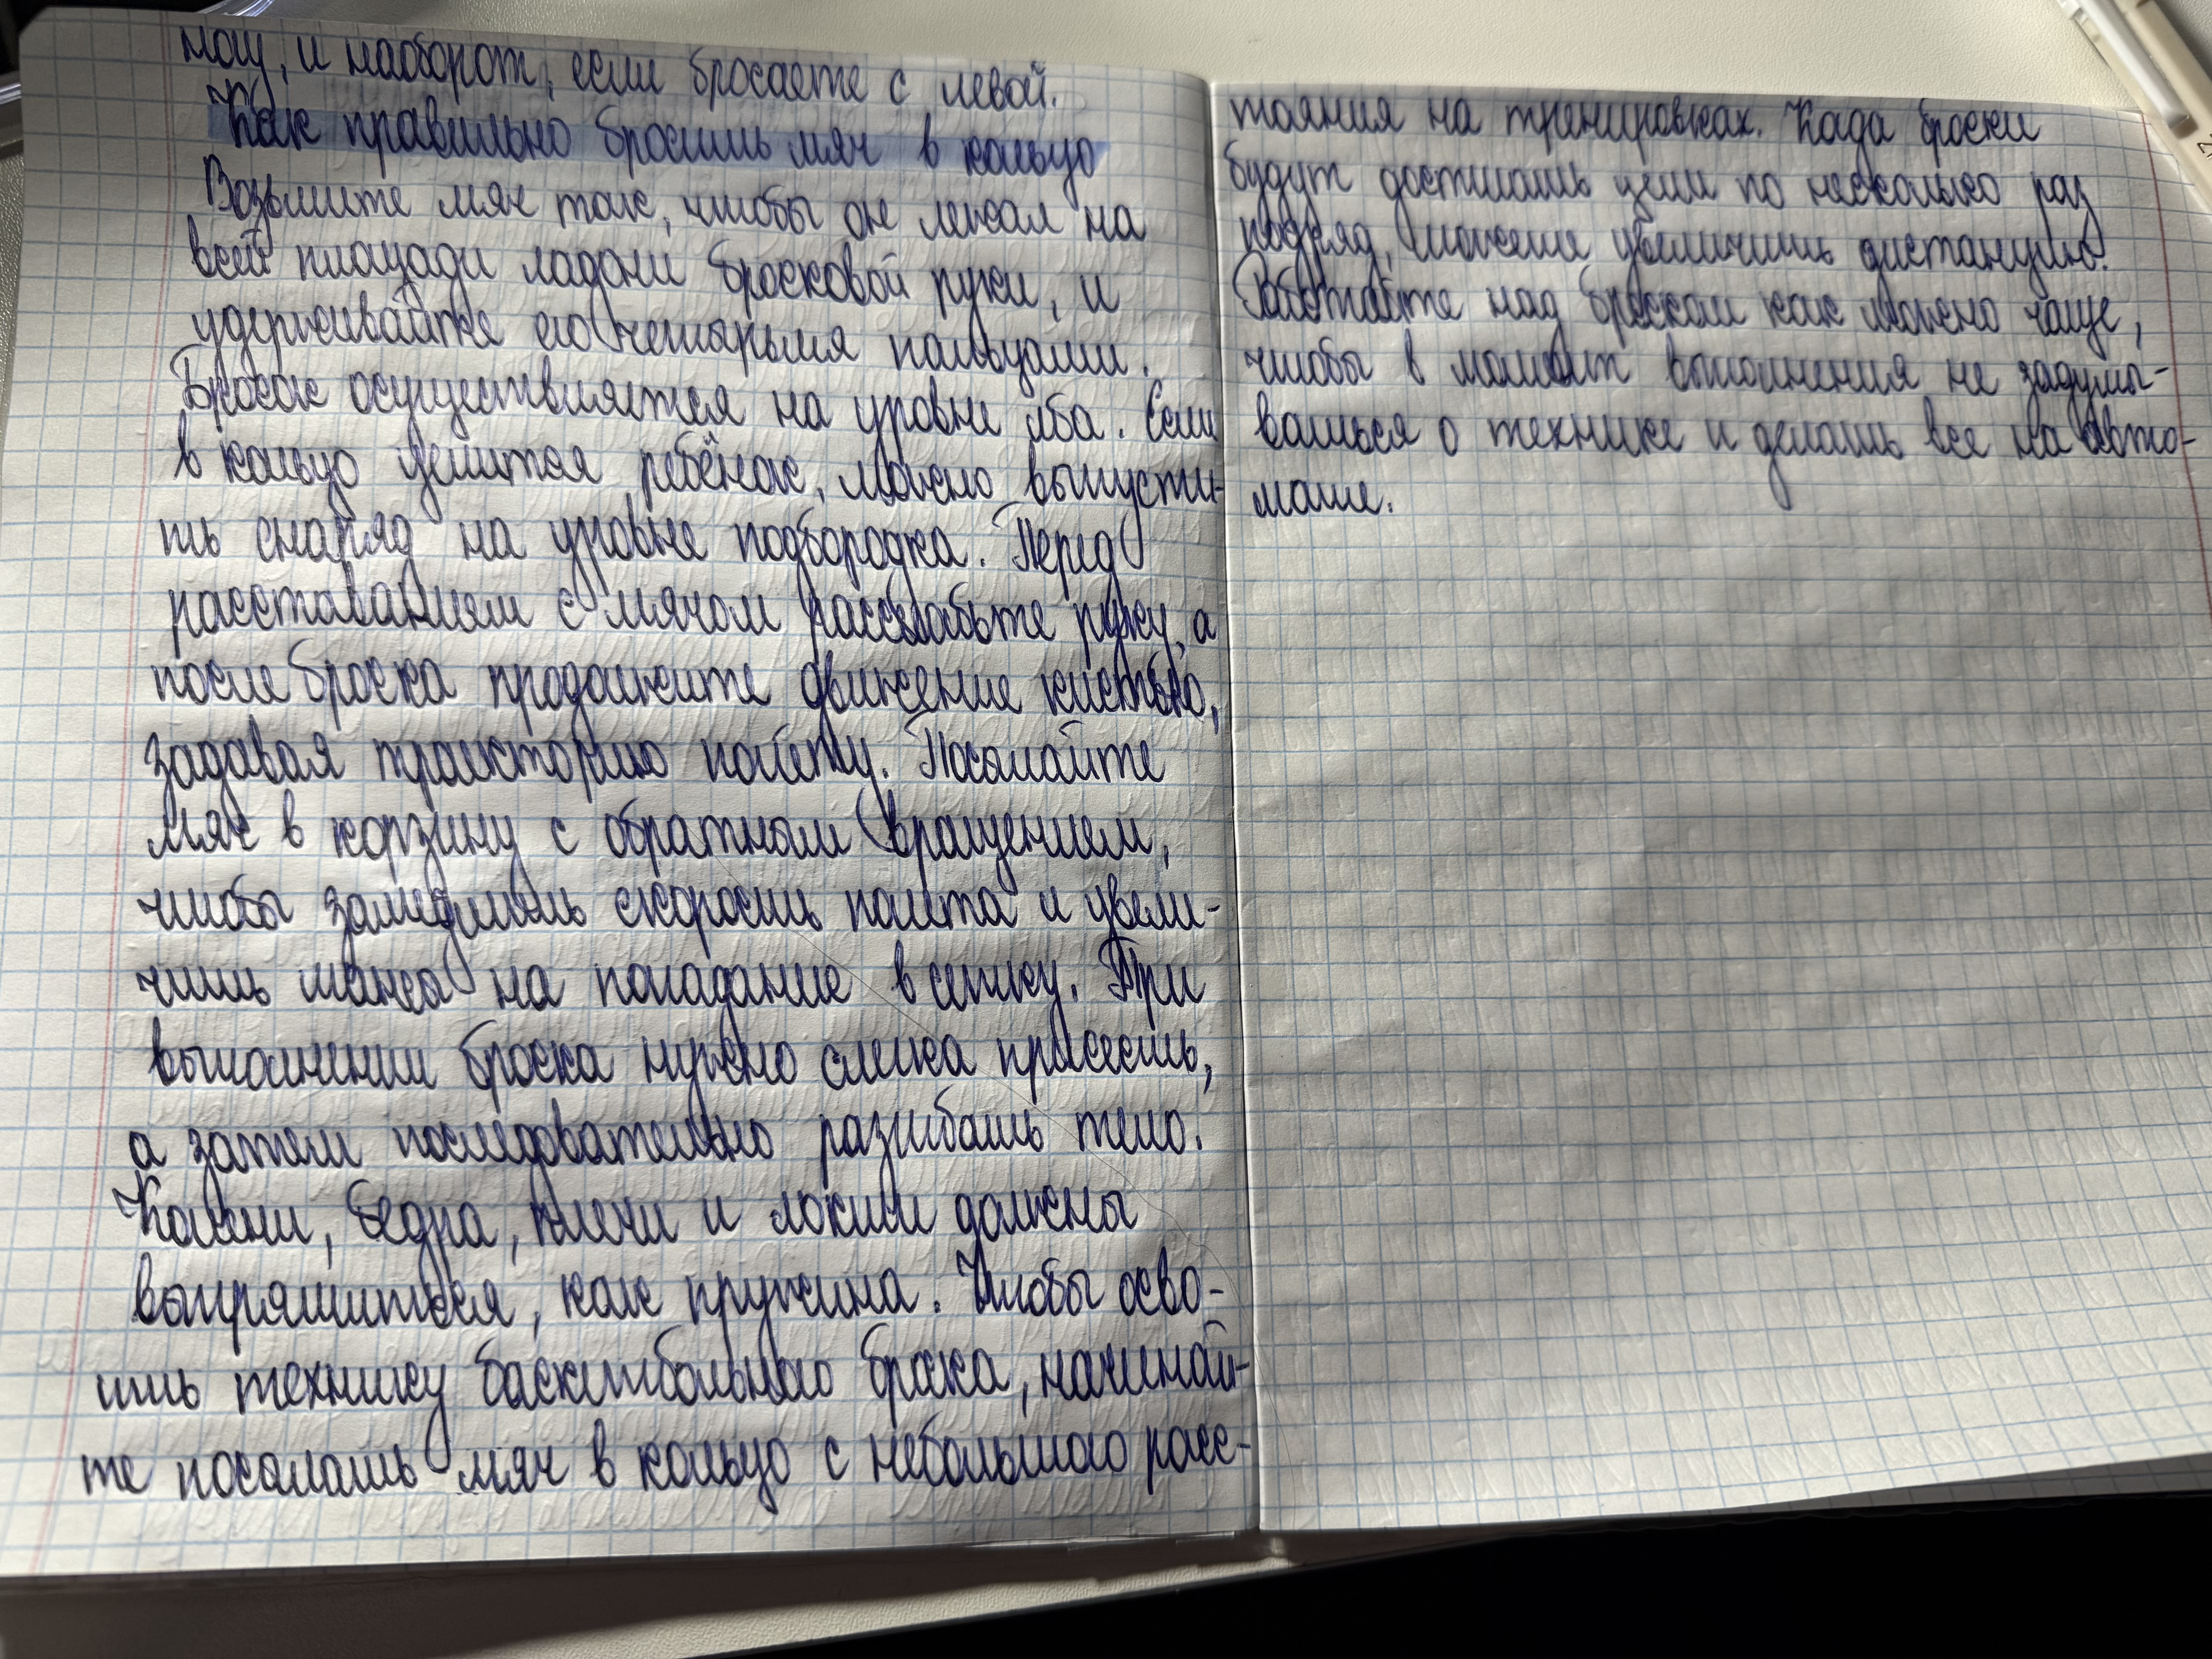 ногу, и наоборот, если бросаете с левой.
Как правильно бросить мяч в кольцо
Возьмите мяч так, чтобы он лежал на
всей площади ладони бросковой руки, и
удерживайте его четырьмя пальцами.
Бросок осуществляется на уровне лба. Если
в кольцо целится ребёнок, можно выпусти-
ть снаряд на уровне подбородка. Перед
расставанием с мячом расслабьте руку, а
после броска продолжите движение кистью,
задавая траекторию полёту. Посылайте
мяч в корзину с обратным вращением,
чтобы замедлить скорость полета и увели-
чить шансы на попадание в сетку. При
выполнении броска нужно слегка присесть,
а затем последовательно разгибать тело.
Колени, бедра, плечи и локти должны
выпрямиться, как пружина. Чтобы осво-
ить технику баскетбольного броска, начинай-
те посылать мяч в кольцо с небольшого расс-
тояния на тренировках. Когда броски
будут достигать цели по несколько раз
подряд, можете увеличить дистанцию.
Работайте над броском как можно чаще,
чтобы в момент выполнения не задумы-
ваться о технике и делать все на авто-
мате.